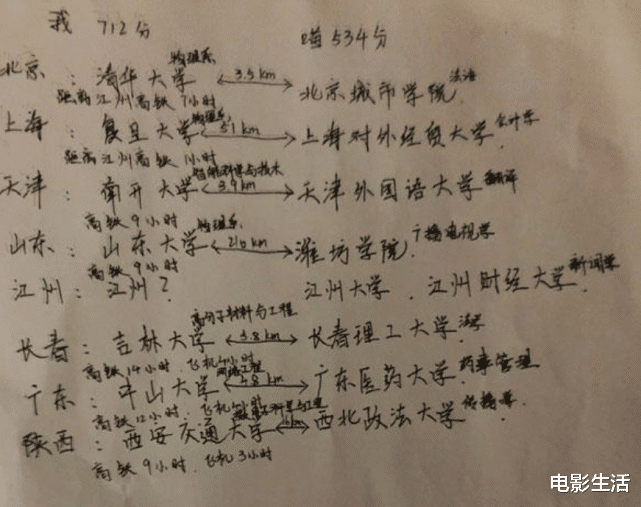 我 712分 喵534分
物理系
北京:清华大学 3.5 km 北京城市学院 法语
距离江州高铁7小时
物理系
上海:复旦大学 51 km 上海对外经贸大学 会计学
距离江州高铁1小时
材料科学与技术
天津:南开大学 3.9 km 天津外国语大学 翻译
高铁9小时
物理系
山东:山东大学 216 km 潍坊学院 广播电视学
高铁9小时
江州:江州? 江州大学,江州财经大学 新闻学
高分子材料与工程
长春:吉林大学 3.8 km 长春理工大学 法学
高铁14小时,飞机4小时
工程
广东:中山大学 58 km 广东医药大学 药事管理
高铁12小时,飞机4小时
科学与工程
陕西:西安交通大学 km 西北政法大学 传播学
高铁9小时,飞机3小时
电影生活